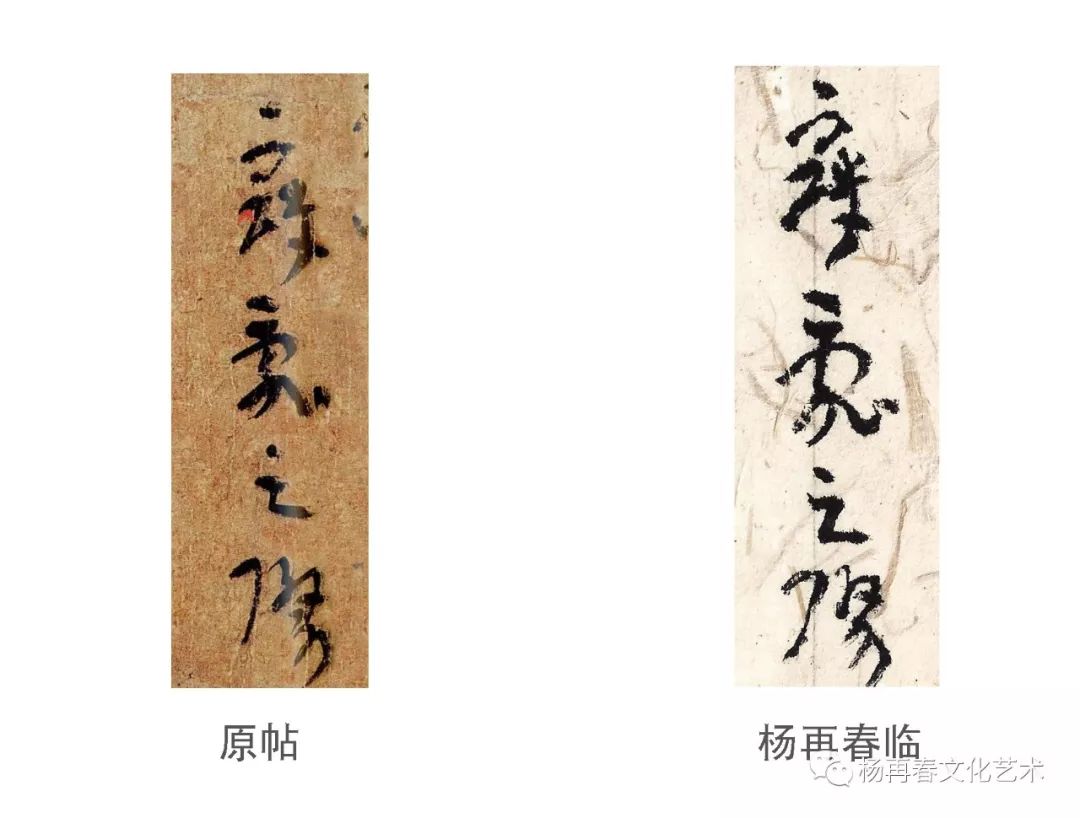 寇亂之際
原帖
寇亂之際
杨再春临
杨再春文化艺术